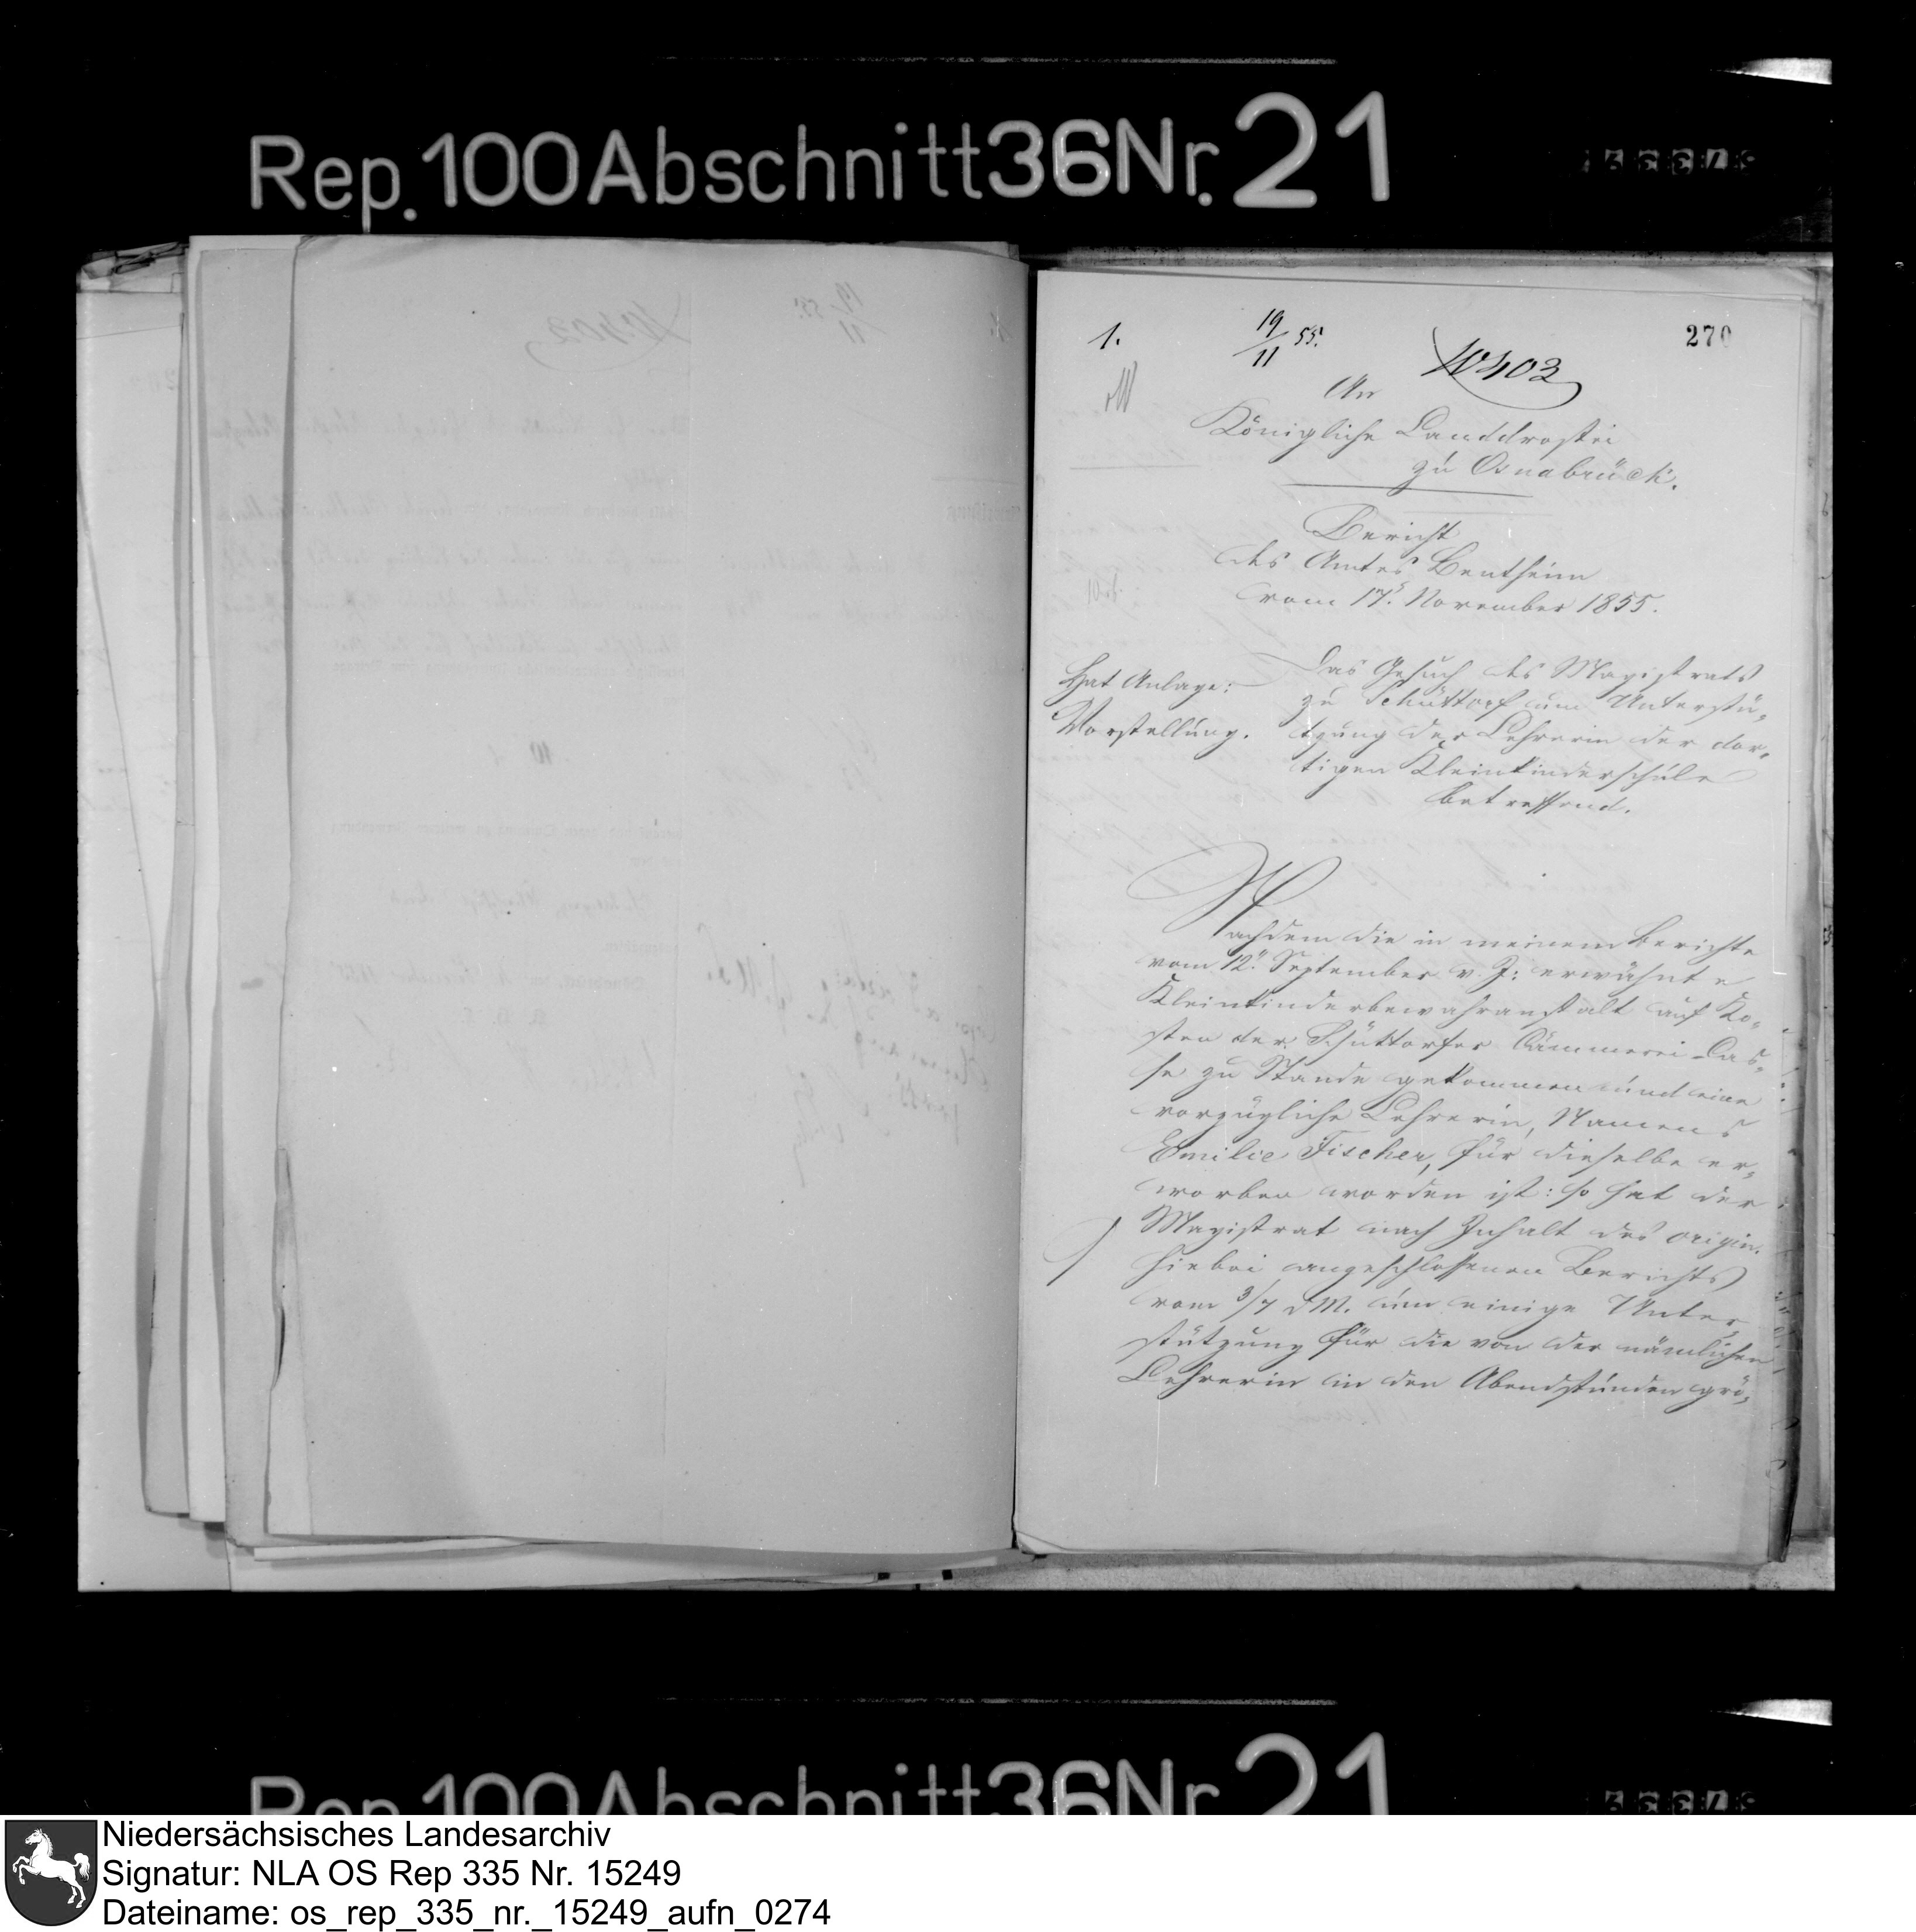 Rep. 100 Abschnitt 36 Nr. 21
1.
19/11 55.
270
10403
An
Königliche Landdrostei
zu Osnabrück.
Bericht
des Amtes Bentheim
vom 17ⁿ November 1855.
Hat Anlage:
Vorstellung.
das Gesuch des Magistrats
zu Schüttorf um Unterstü-
tzung der Lehrerin der dor-
tigen Kleinkinderschule
betreffend.
Nachdem die in meinem Berichte
vom 12ⁿ September v. J: erwähnte
Kleinkinderbewahranstalt auf Ko-
sten der Schüttorfer Cämmerei-Cas-
se zu Stande gekommen und eine
vorzügliche Lehrerin, Namens
Emilie Fischer, für dieselbe er-
worben worden ist: so hat der
Magistrat nach Inhalt des origin.
hiebei angeschlossenen Berichts
vom 3/7 d M. um einige Unter-
stützung für die von der nämlichen
Lehrerin in den Abendstunden grö-
Rep. 100 Abschnitt 36 Nr. 21
Niedersächsisches Landesarchiv
Signatur: NLA OS Rep 335 Nr. 15249
Dateiname: os_rep_335_nr._15249_aufn_0274